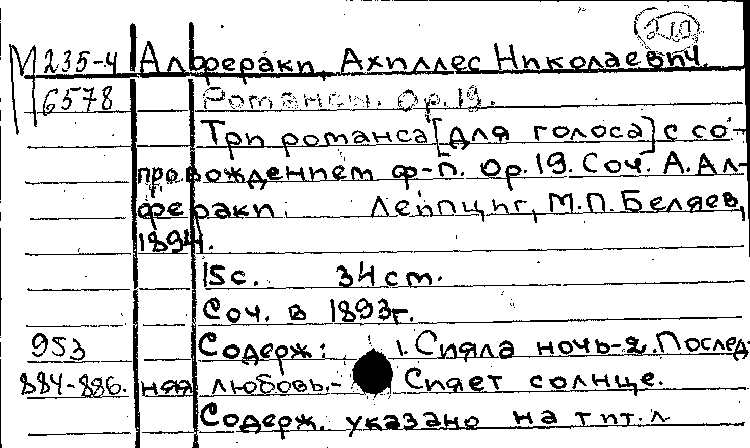 210
М 235-4 Алфераки, Ахиллес Николаевич.
6578 Романсы. Ор. 19.
Три романса [для голоса] с со-
провождением ф-п. Ор. 19. Соч. А. Ал-
фераки. Лейпциг, М.П. Беляев,
1894.
15 с. 34 см.
Соч. в 1893 г.
953 Содерж: 1. Сияла ночь - 2. Послед-
884-886. няя любовь. - Сияет солнце.
Содерж. указано на тит. л.